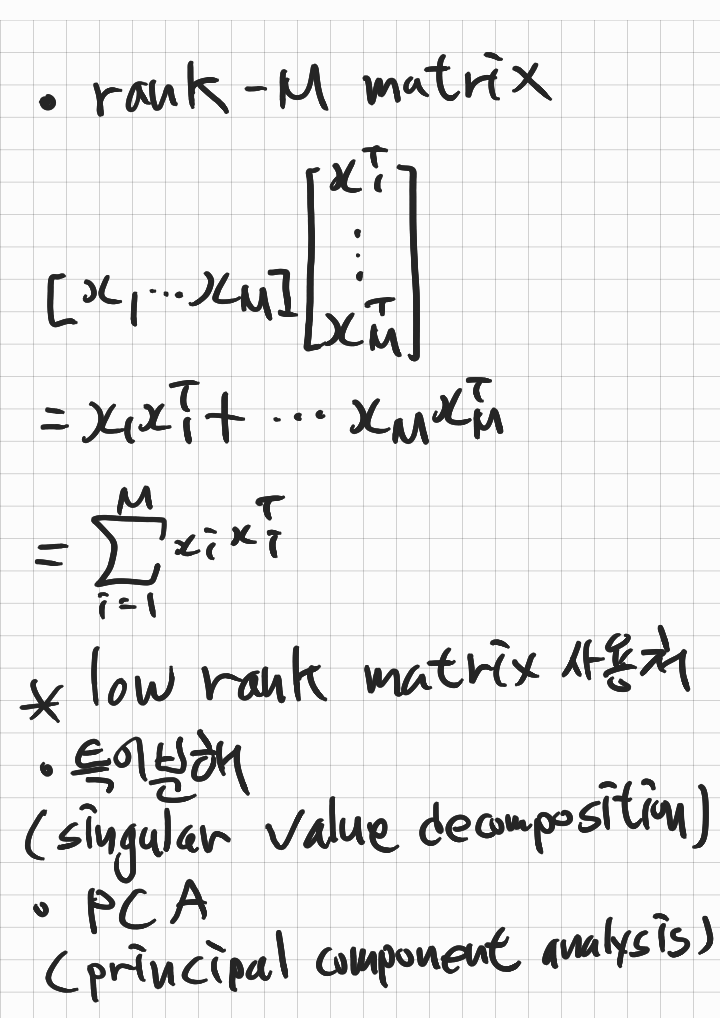 • rank-M matrix
[x₁ ⋯ x_M] [x₁ᵀ ⋮ x_Mᵀ]
= x₁x₁ᵀ + ⋯ x_M x_Mᵀ
= ∑_{i=1}^{M} xᵢxᵢᵀ
* low rank matrix 사용처
• 특이분해
(singular value decomposition)
• PCA
(principal component analysis)